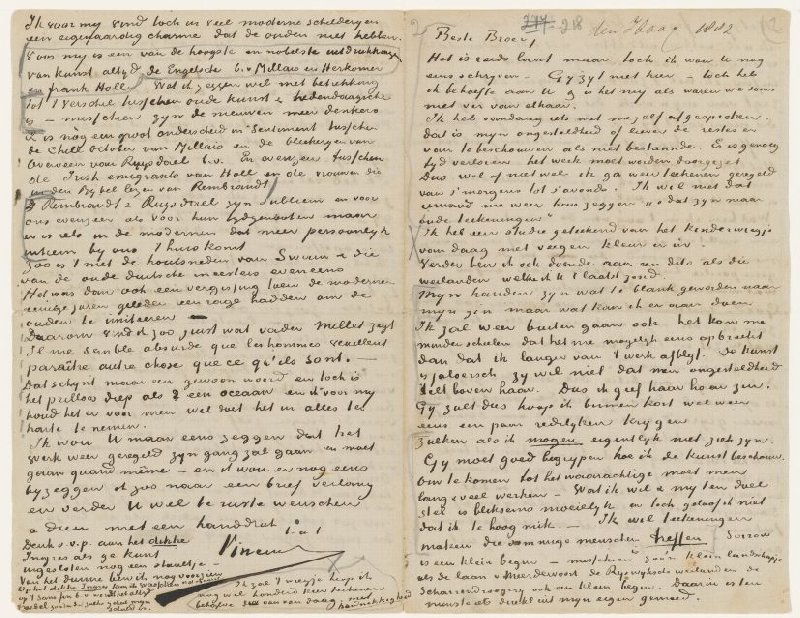 Beste Broer,
den Haag 1882
218
Het is eerst laat maar toch ik wou U nog
eens schrijven – Gij zijt niet hier – doch heb
ik behoefte aan U & is het mij als waren we soms
niet ver van elkaar.
Ik heb vandaag iets met mijzelf afgesproken
dat is mijn ongesteldheid of liever de restes er
van te beschouwen als niet bestaande. Er is genoeg
tijd verloren het werk moet worden doorgezet
Dus wel of niet wel ik ga weer teekenen geregeld
van s'morgens tot s'avonds. Ik wil niet dat
iemand me weer kan zeggen „o dat zijn maar
oude teekeningen"
Ik heb een studie geteekend van het kinderwiegje
van daag met vegen kleur er in.
Verder ben ik ook doende aan nu dito als die
weilanden welke ik U 't laatst zond.
Mijn handen zijn wat te blank geworden naar
mijn zin maar wat kan ik er aan doen
Ik zal weer buiten gaan ook het kan me
minder schelen dat het me mogelijk eens opbreekt
dan dat ik langer van 't werk afblijf. De kunst
is jaloersch zij wil niet dat men ongesteldheid
stelt boven haar. Dus ik geef haar haar zin.
Gij zult dus hoop ik binnen kort wel weer
eens een paar redelijken krijgen
Zulken als ik mogen eigentlijk niet ziek zijn.
Gij moet goed begrijpen hoe ik de kunst beschouw.
Om te komen tot het waarachtige moet men
lang & veel werken – Wat ik wil & mij ten doel
stel is bliksems moeielijk en toch geloof ik niet
dat ik te hoog mik – Ik wil teekeningen
maken die sommige menschen treffen Sorrow
is een klein begin – misschien zoo'n klein landschapje
als de laan v Meerdervoort de Rijswijksche weilanden de
Scharrendroogerij ook een klein begin. Daarin is ten
minste iets direkt uit mijn eigen gemoed.
Ik voor mij vind toch in veel moderne schilderijen
een eigenaardige charme dat de ouden niet hebben.
Voor mij is een van de hoogste en nobelste uitdrukkingen
van kunst altijd de Engelsche b.v. Millais en Herkomer
en Frank Holl. Wat ik zeggen wil met betrekking
tot 't verschil tusschen oude kunst & hedendaagsche
is – misschien zijn de nieuwen meer denkers
Er is nog een groot onderscheid in sentiment tusschen
de Chill October van Millais en de bleekerijen van
Overveen van Ruysdael b.v. En evenzeer tusschen
de Irish emigrants van Holl en de vrouwen die
uit den Bijbel lezen van Rembrandt
Rembrandt & Ruysdael zijn subliem en voor
ons evenzeer als voor hun tijdgenooten maar
er is iets in de modernen dat meer persoonlijk
intiem bij ons thuis komt
Zoo is 't met de houtsneden van Swain & die
van de oude duitsche meesters eveneens
Het was dan ook een vergissing toen de modernen
eenige jaren geleden een rage hadden om de
ouden te imiteeren –
Daarom vind ik zoo juist wat vader Millet zegt
Il me semble absurde que les hommes veuillent
paraître autre chose que ce qu'ils sont. –
Dat schijnt maar een gewoon woord en toch is
het peilloos diep als een oceaan en ik voor mij
houd het er voor men wel doet het in alles ter
harte te nemen.
Ik wou U maar eens zeggen dat het
werk weer geregeld zijn gang zal gaan en moet
gaan quand même – en ik wou er nog eens
bijzeggen ik zoo naar een brief verlang
en verder U wel te ruste wenschen
adieu met een handdruk
t. à t.
Vincent
Denk s.v.p. aan het dikke
Ingres als ge kunt
ingesloten nog een staaltje.
Van het dunne ben ik nog voorzien
Ik zoo 't wiegje hoop ik
nog wel honderd keer teekenen
behalve dat van van daag. met
hardnekkigheid